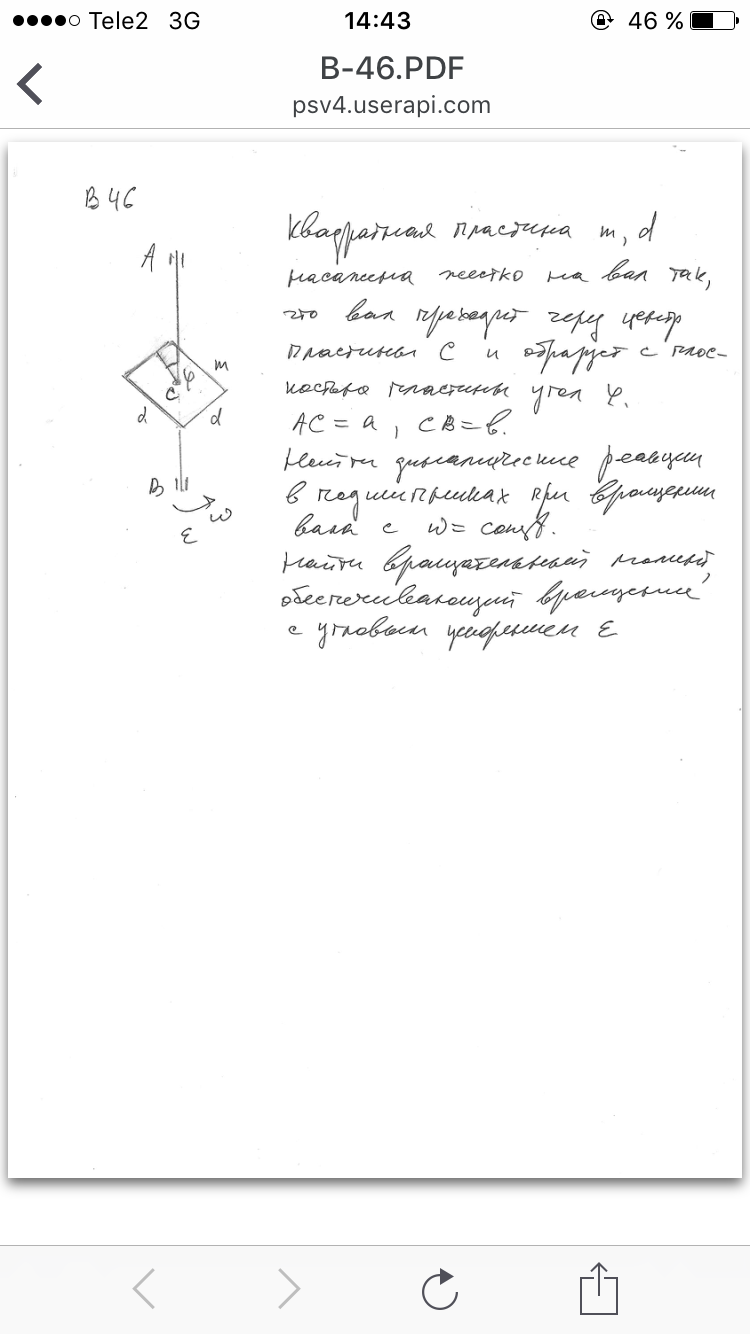 Tele2 3G 14:43 46 %
B-46.PDF
psv4.userapi.com
В 46
Квадратная пластина m, d
насажена жестко на вал так,
что вал проходит через центр
пластины С и образует с плос-
костью пластины угол φ.
AC = a, CB = b.
Найти динамические реакции
в подшипниках при вращении
вала с ω = const.
Найти вращательный момент,
обеспечивающий вращение
с угловым ускорением ε
A
m
φ
C
d d
B
ω
ε